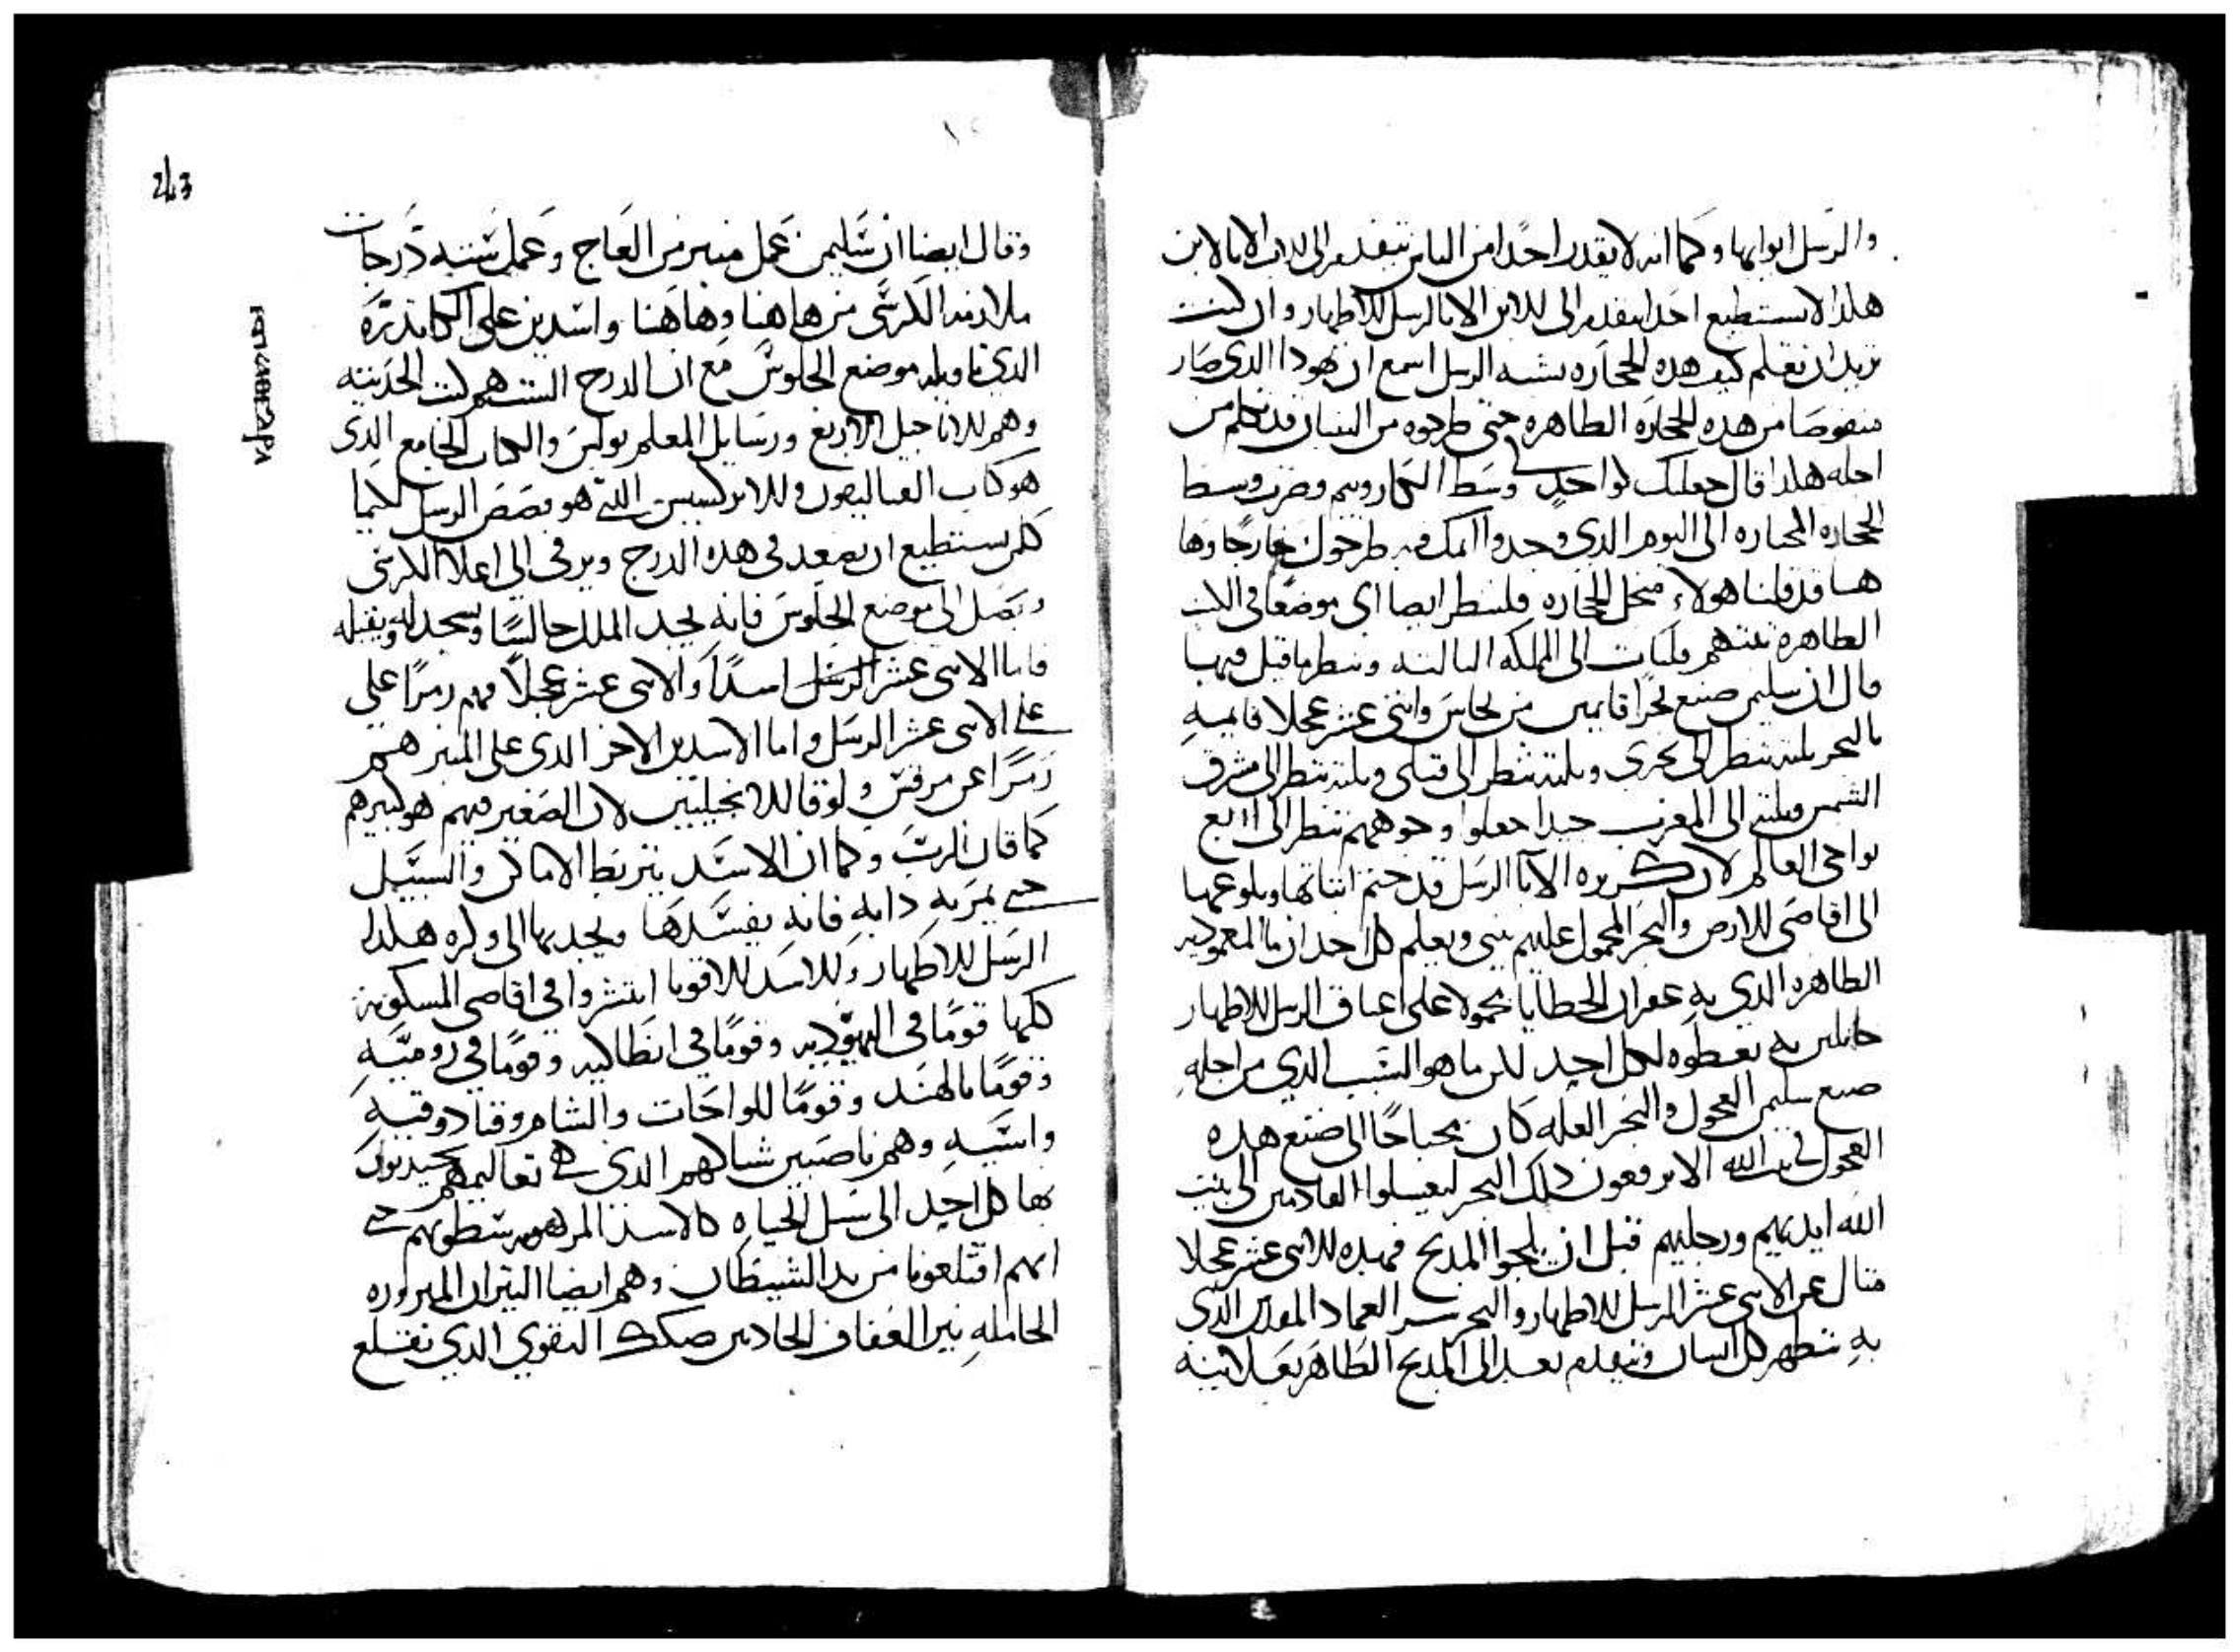 والرسل ابوابها وكما انه لا يقدر احدًا من الناس يتقدم الى الاب الا بالابن
هكذا لا يستطيع احد يتقدم الى الابن الا بالرسل الاطهار وان كنت
تريد ان تعلم كيف هذه الحجاره تشبه الرسل اسمع ان يهودا الذي صار
منقوصًا من هذه الحجاره الطاهره حتى طرحوه من البنيان قد تكلم من
اجله هكذا قال جعلتك كواحد في وسط الشاروبيم وصرت وسط
الحجاره المختاره الى اليوم الذي وجدوا اثمك فيه طرحوك خارجًا وها
هنا قد قلنا هولاء من اجل الحجاره فلننظر ايضا اي موضعًا في الكتب
الطاهره تشبههم فلنات الى المملكه الثالثه وننظر ما قيل فيها
قال ان سليمن صنع بحرًا قايمين من نحاس واثنى عشر عجلا قايمه
بالبحر ثلثه تنظر الى بحري وثلثه تنظر الى قبلى وثلثه تنظر الى مشرق
الشمس وثلثه الى المغرب جيدا جعلوا وجوههم تنظر الى اربع
نواحي العالم لان كريزه الابا الرسل قد ختم اثباتها وبلوغها
الى اقاصى الارض والبحر المحمول عليهم يبنى ويعلم كل احد ان المعموديه
الطاهره الذي به غفران الخطايا محموله على اعناق الرسل الاطهار
حاملين به يعطوه لكل احد لكن ما هو السبب الذي من اجله
صنع سليمن العجول والبحر العله كان محتاجًا الى صنع هذه
العجول في بيت الله الا يرفعون ذلك البحر ليغسلوا القادمين الى بيت
الله ايديهم ورجليهم قبل ان يلجوا المذبح فهذه الاثنى عشر عجلا
مثال عن الاثنى عشر الرسل الاطهار والبحر سر العماد المقدس الذي
به تطهر كل انسان ويتقدم بعد الى المذبح الطاهر بعلانيه
243
وقال ايضا ان سليمن عمل منبر من العاج وعمل سته درجات
ملازمه الكرسى من هاهنا وهاهنا واسدين على الكاندره
الذي تاويله موضع الجلوس مع ان الدرج الست هم كتب الحديثه
وهم الاناجيل الاربع ورسايل المعلم بولس والكتاب الجامع الذى
هو كتاب القثاليقون والابركسيس الذي هو قصص الرسل لكيما
كلمن يستطيع ان يصعد في هذه الدرج ويرقى الى اعلا الكرسى
ويصل الى موضع الجلوس فانه يجد الملك جالسًا ويسجد له ويقبله
فاما الاثنى عشر الرسل اسدًا والاثنى عشر عجلاً فهم رمزًا على
على الاثنى عشر الرسل واما الاسدين الاخر الذى على المنبر هم
رمزًا عن مرقس ولوقا الانجيليين لان الصغير فيهم هو كبيرهم
كما قال الرب وكما ان الاسد يتربط الاماكن والسبيل
حتى يمر به دابه فانه يفسدها ويجذبها الى وكره هكذا
الرسل الاطهار والاسد الاقويا انتشروا في اقاصى المسكونه
كلها قومًا في اليهوديه وقومًا في انطاكيه وقومًا في روميه
وقومًا بالهند وقومًا للواحات والشام وقبادوقيه
واسيه وهم ناصبين شباكهم الذى هى تعاليمهم يجيدبون
بها كل احد الى سبل الحياه كالاسد المرهوب سطوتهم حتى
انهم اقتلعونا من يد الشيطان وهم ايضا الثيران المبروره
الحامله نير العفاف الجادين صكك التقوى الذي تقتلع